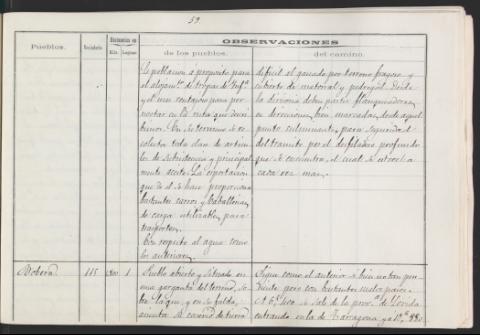 59
Pueblos.
Vecindario
Distancias en
Kils.
Leguas
OBSERVACIONES
de los pueblos.
del camino.
Es poblacion á proposito para
el alojam.to de tropas de Inf.a
y el mas ventajoso para per-
noctar en la ruta que descri-
bimos. En su termino se co-
secha toda clase de articu-
los de subsistencia y principal
mente aceite. La exportacion
que de él se hace proporciona
bastantes carros y caballerias
de carga utilizables para
trasportes.
Con respecto al agua como
los anteriores.
dificil el ganado por terreno fragoso y
cubierto de matorral y pedregal. Desde
la divisoria deben partir flanqueadores
en direcciones bien marcadas desde aquel
punto culminante, para seguridad
del transito por el desfiladero profundo
que se encuentra, el cual se estrecha
cada vez mas.
115
1
Pueblo abierto y situado en
una garganta del terreno, so-
bre la que, y en su falda,
asienta el caserio de tierra
Sigue como el anterior si bien no tan pen-
diente pero con bastantes malos pasos.
A 6,500 se sale de la prov.a de Lerida
entrando en la de Tarragona y á